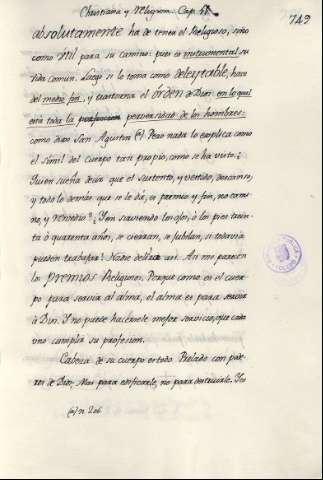 Christiana y Religiosa. Cap. 
743
absolutamente ha de tener el Religioso, sino
como util para su camino: pues es instrumental su
vida comun. Luego si le toma como deleytable, hace
del medio fin, y trastorna el Orden de Dios en lo qual
está toda la perversidad de los hombres:
como dixo San Agustin (a) Pero nada lo explica como
el simil del Cuerpo tan propio, como se ha visto.
Quien sueña decir que el sustento, y vestido, descanso,
y todo lo demás que se le dá, es premio y fin, no cami-
no, y remedio? Y en sirviendo los ojos, ó los pies trein-
ta ó quarenta años, se cierran, se jubilan, si todavia
pueden trabajar? Nadie dellos usi. Asi me parecen
los premios Religiosos. Porque como en el cuer-
po para servir al alma, el alma es para servir
á Dios. Y no puede hacersele mejor servicio, que cada
uno cumplir su profesion.
Cabeza de su cuerpo es todo Prelado con pode-
res de Dios, Mas para edificarle, no para destruirle. Y es
(a) n. 206